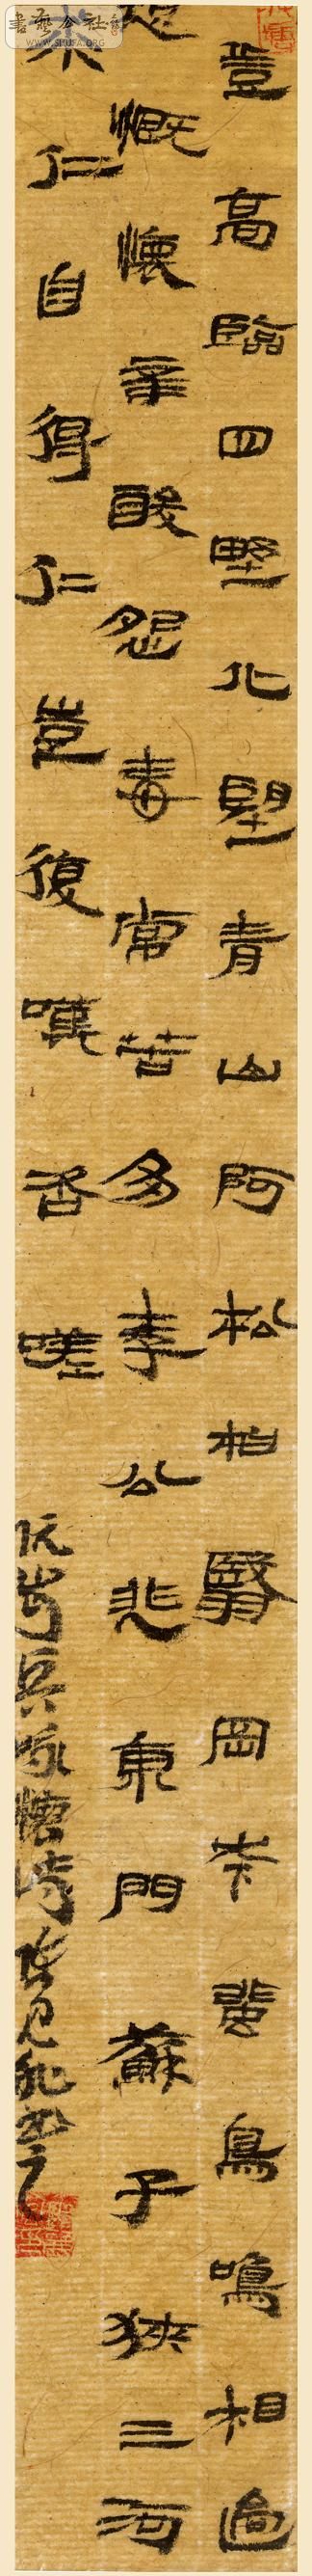 登高臨四野北望青山阿松柏翳岡岑蜚鳥鳴相過
感慨懷辛酸怨毒常苦多李公悲東門蘇子狹三河
求仁自得仁豈復嘆咨嗟
阮步兵詠懷詩 書之
書藝公社
WWW.SHUFA.ORG